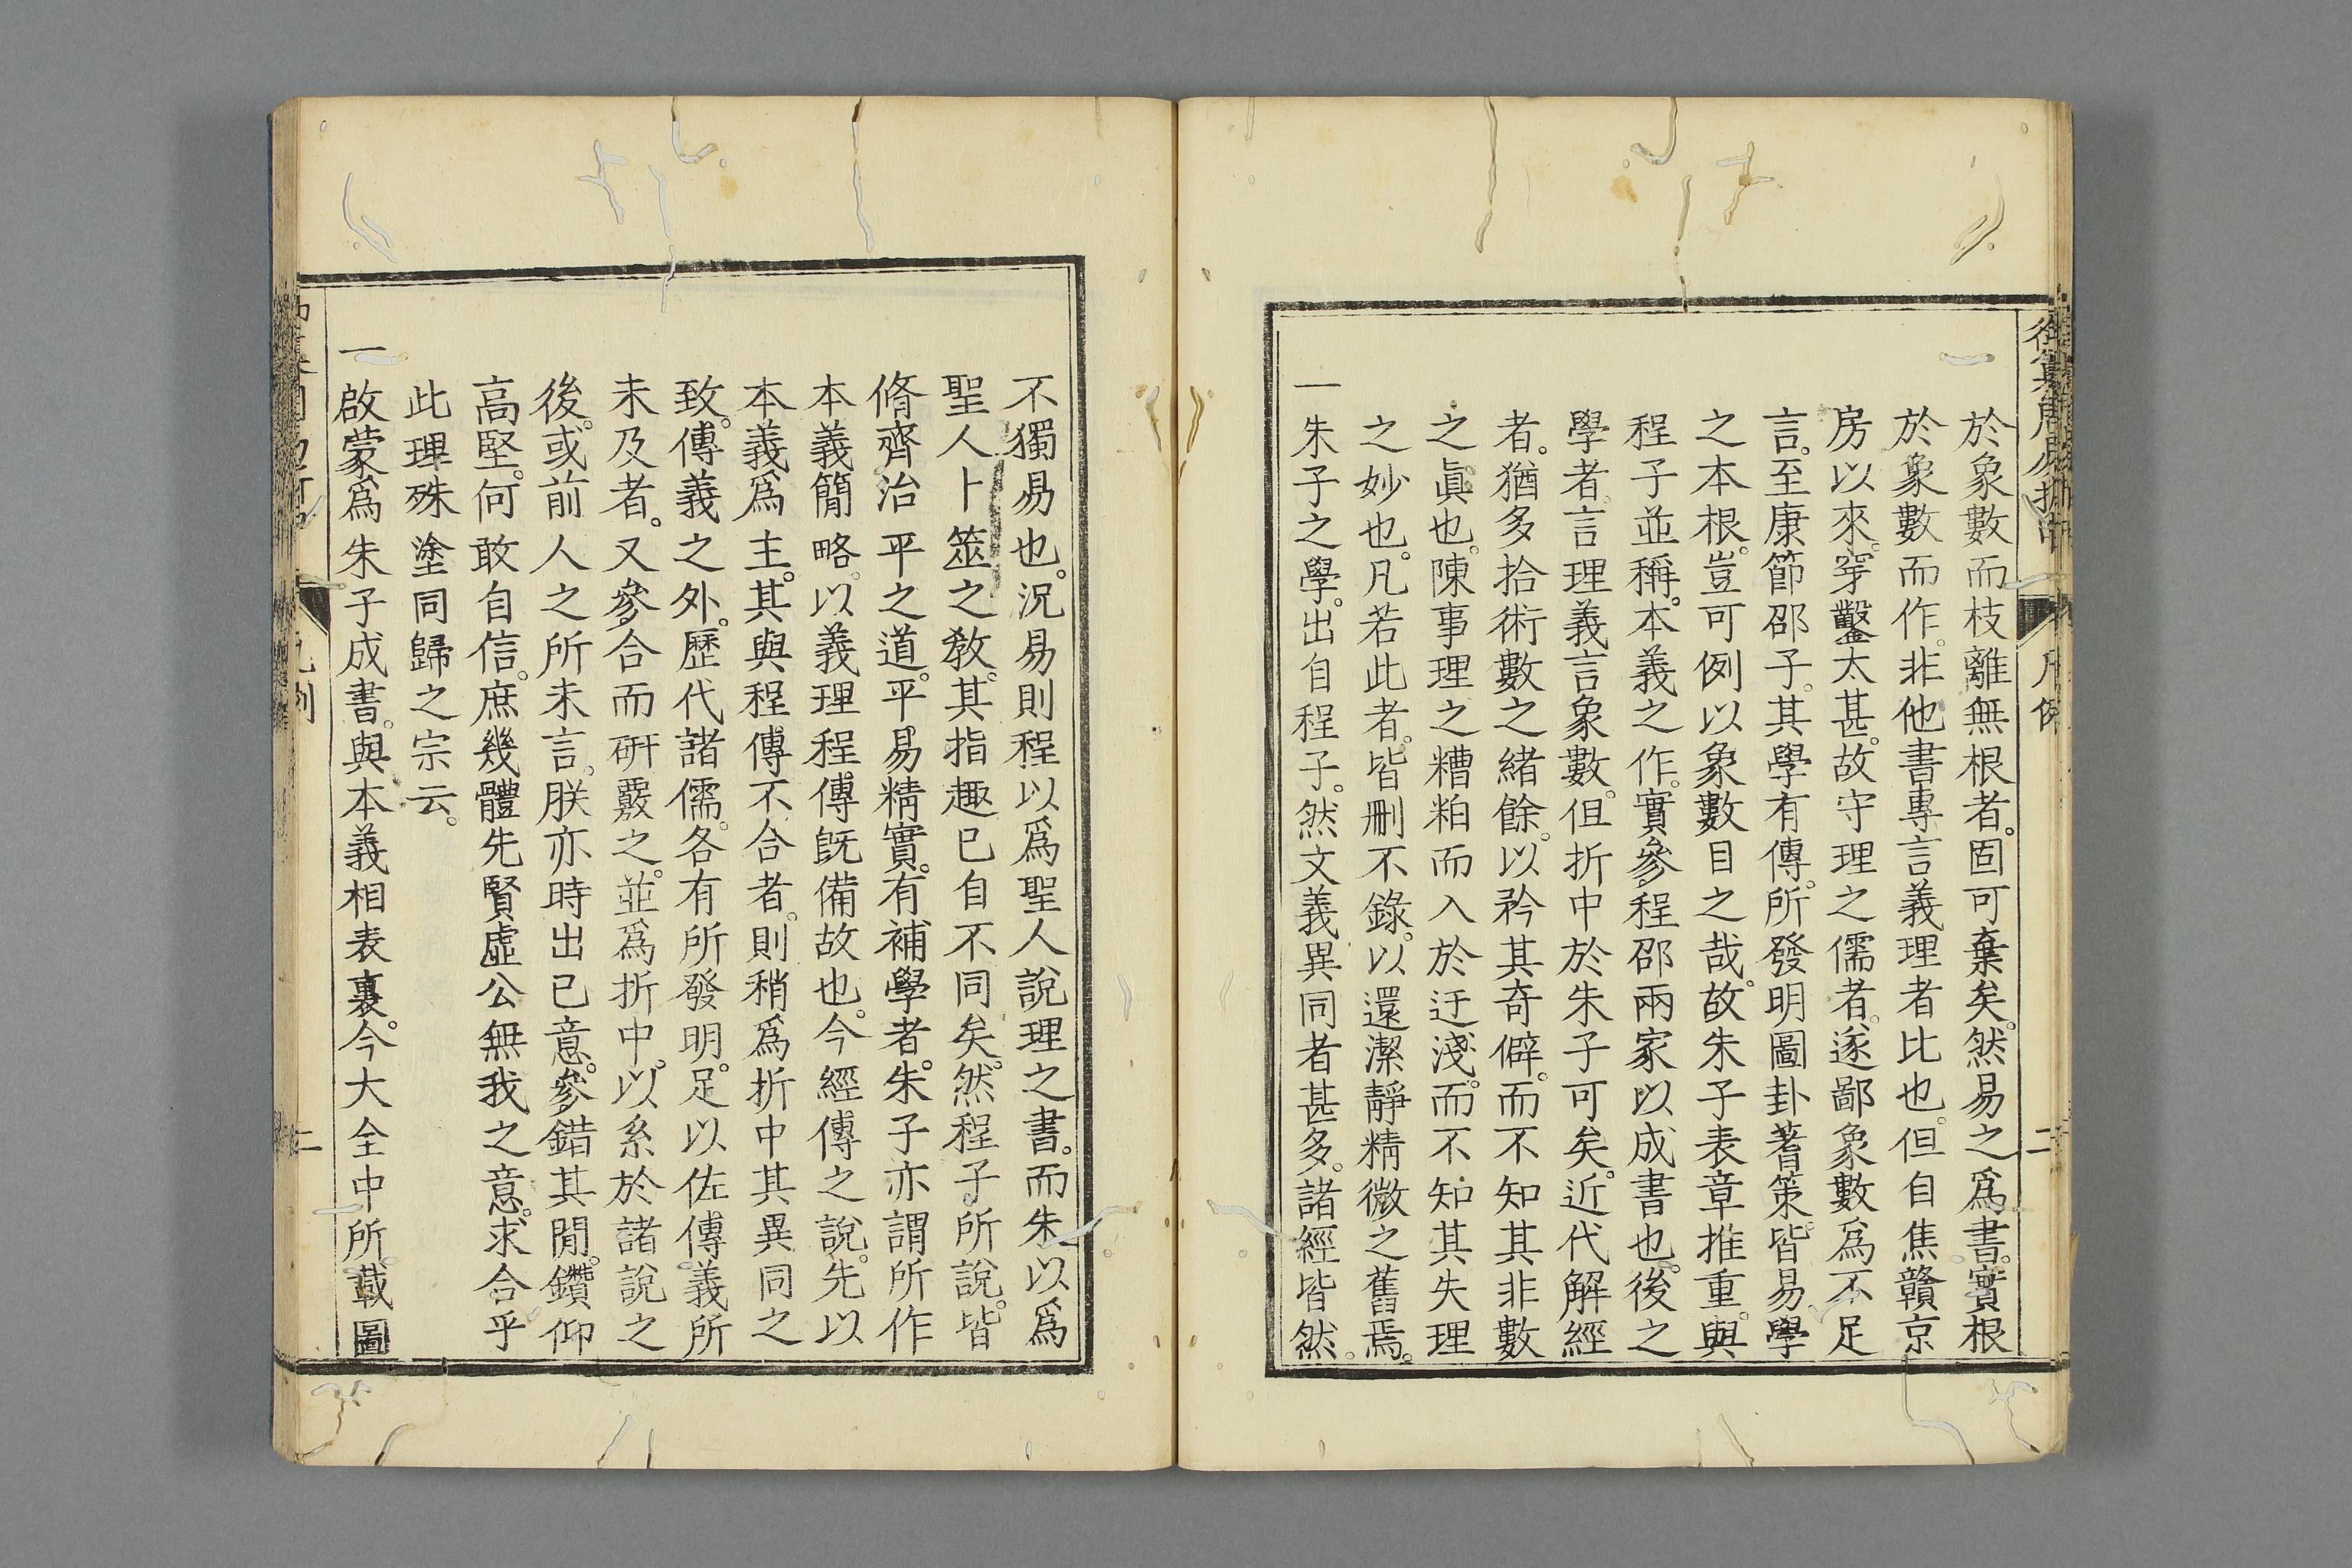 御纂周易折中 凡例 二
於象數而枝離無根者。固可棄矣。然易之爲書。實根
於象數而作。非他書專言義理者比也。但自焦贛京
房以來。穿鑿太甚。故守理之儒者。遂鄙象數爲不足
言。至康節邵子。其學有傳。所發明圖卦蓍策。皆易學
之本根。豈可例以象數目之哉。故朱子表章推重。與
程子並稱。本義之作。實參程邵兩家以成書也。後之
學者。言理義言象數。但折中於朱子可矣。近代解經
者。猶多拾術數之緒餘。以矜其奇僻。而不知其非數
之眞也。陳事理之糟粕而入於迂淺。而不知其失理
之妙也。凡若此者。皆刪不錄。以還潔靜精微之舊焉。
一朱子之學。出自程子。然文義異同者甚多。諸經皆然。
不獨易也。況易則程以爲聖人說理之書。而朱以爲
聖人卜筮之教。其指趣已自不同矣。然程子所說。皆
脩齊治平之道。平易精實。有補學者。朱子亦謂所作
本義簡略。以義理程傳旣備故也。今經傳之說。先以
本義爲主。其與程傳不合者。則稍爲折中其異同之
致。傳義之外。歷代諸儒。各有所發明。足以佐傳義所
未及者。又參合而研覈之。並爲折中。以系於諸說之
後。或前人之所未言。朕亦時出已意。參錯其閒。鑽仰
高堅。何敢自信。庶幾體先賢虛公無我之意。求合乎
此理殊塗同歸之宗云。
一啟蒙爲朱子成書。與本義相表裏。今大全中所載圖